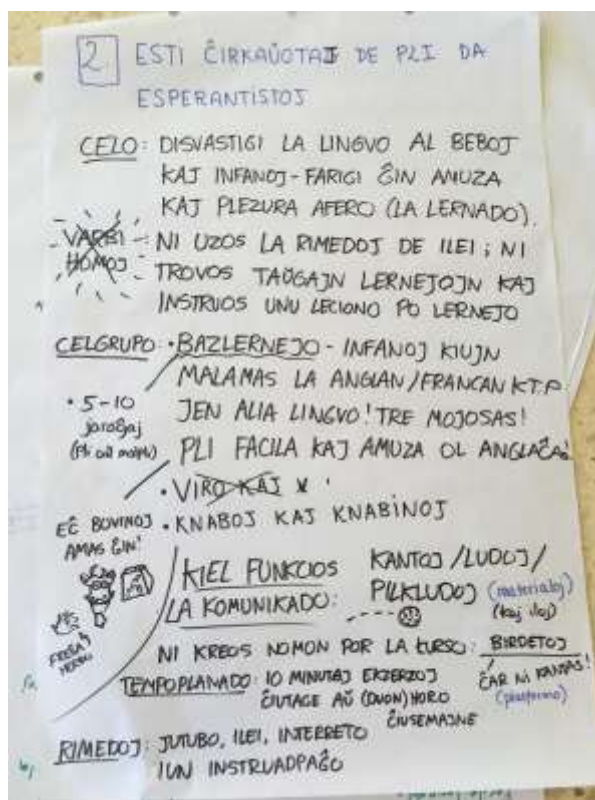 2. ESTI ĈIRKAŬOTAJ DE PLI DA
ESPERANTISTOJ
CELO: DISVASTIGI LA LINGVO AL BEBOJ
KAJ INFANOJ - FARIGI ĜIN AMUZA
KAJ PLEZURA AFERO (LA LERNADO).
VARBI HOMOJ
- NI UZOS LA RIMEDOJ DE ILEI; NI
TROVOS TAŬGAJN LERNEJOJN KAJ
INSTRUOS UNU LECIONO PO LERNEJO
CELGRUPO: • BAZLERNEJO - INFANOJ KIUJN
MALAMAS LA ANGLAN/FRANCAN K.T.P.
JEN ALIA LINGVO! TRE MOJOSAS!
PLI FACILA KAJ AMUZA OL ANGLAĈA!
• 5-10
jaraĝaj
(pli aŭ malpli)
• VIRO KAJ
• KNABOJ KAJ KNABINOJ
EĈ BOVINOJ
AMAS ĜIN!
FREŜAJ
HERBOJ
KIEL FUNKCIOS
LA KOMUNIKADO:
KANTOJ/LUDOJ/
PILKLUDOJ (materialoj)
(kaj iloj)
NI KREOS NOMON POR LA KURSO: BIRDETOJ
ĈAR NI KANTAS!
(platformo)
TEMPOPLANADO: 10 MINUTAJ EKZERZOJ
ĈIUTAGE AŬ (DUON)HORO
ĈIUSEMAJNE
RIMEDOJ: JUTUBO, ILEI, INTERRETO
IUN INSTRUADPAĜO